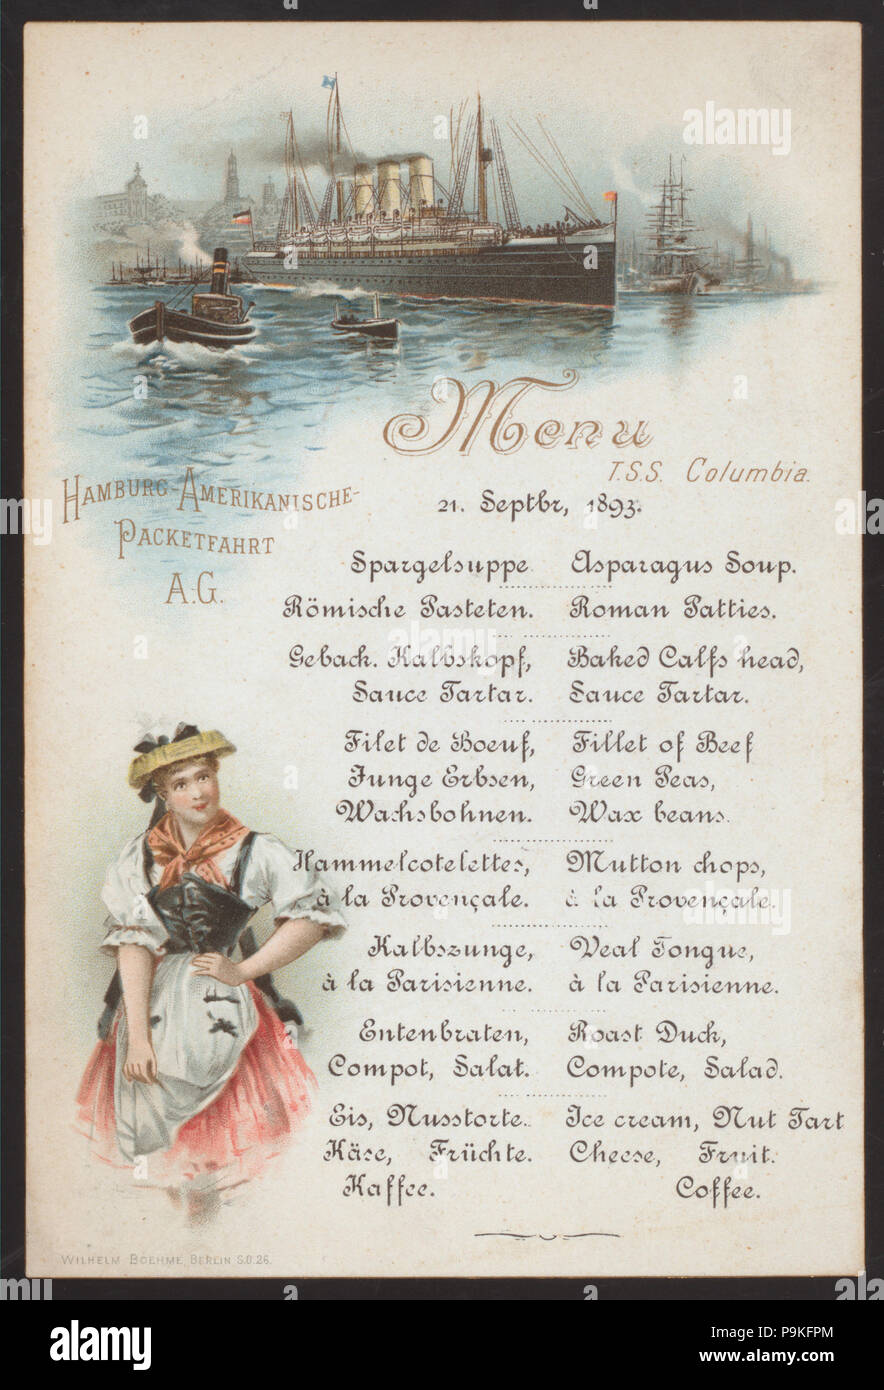 Menu
T.S.S. Columbia.
21. Septbr, 1893.
HAMBURG-AMERIKANISCHE-
PACKETFAHRT
A.G.
Spargelsuppe Asparagus Soup.
Römische Pasteten. Roman Patties.
Geback. Kalbskopf, Baked Calfs head,
Sauce Tartar. Sauce Tartar.
Filet de Boeuf, Fillet of Beef
Junge Erbsen, Green Peas,
Wachsbohnen. Wax beans.
Hammelcotelettes, Mutton chops,
à la Provençale. à la Provençale.
Kalbszunge, Veal Tongue,
à la Parisienne. à la Parisienne.
Entenbraten, Roast Duck,
Compot, Salat. Compote, Salad.
Eis, Nusstorte. Ice cream, Nut Tart
Käse, Früchte. Cheese, Fruit.
Kaffee. Coffee.
WILHELM BOEHME, BERLIN S.O. 26.
alamy
alamy
alamy
alamy
Image ID: P9KFPM
www.alamy.com